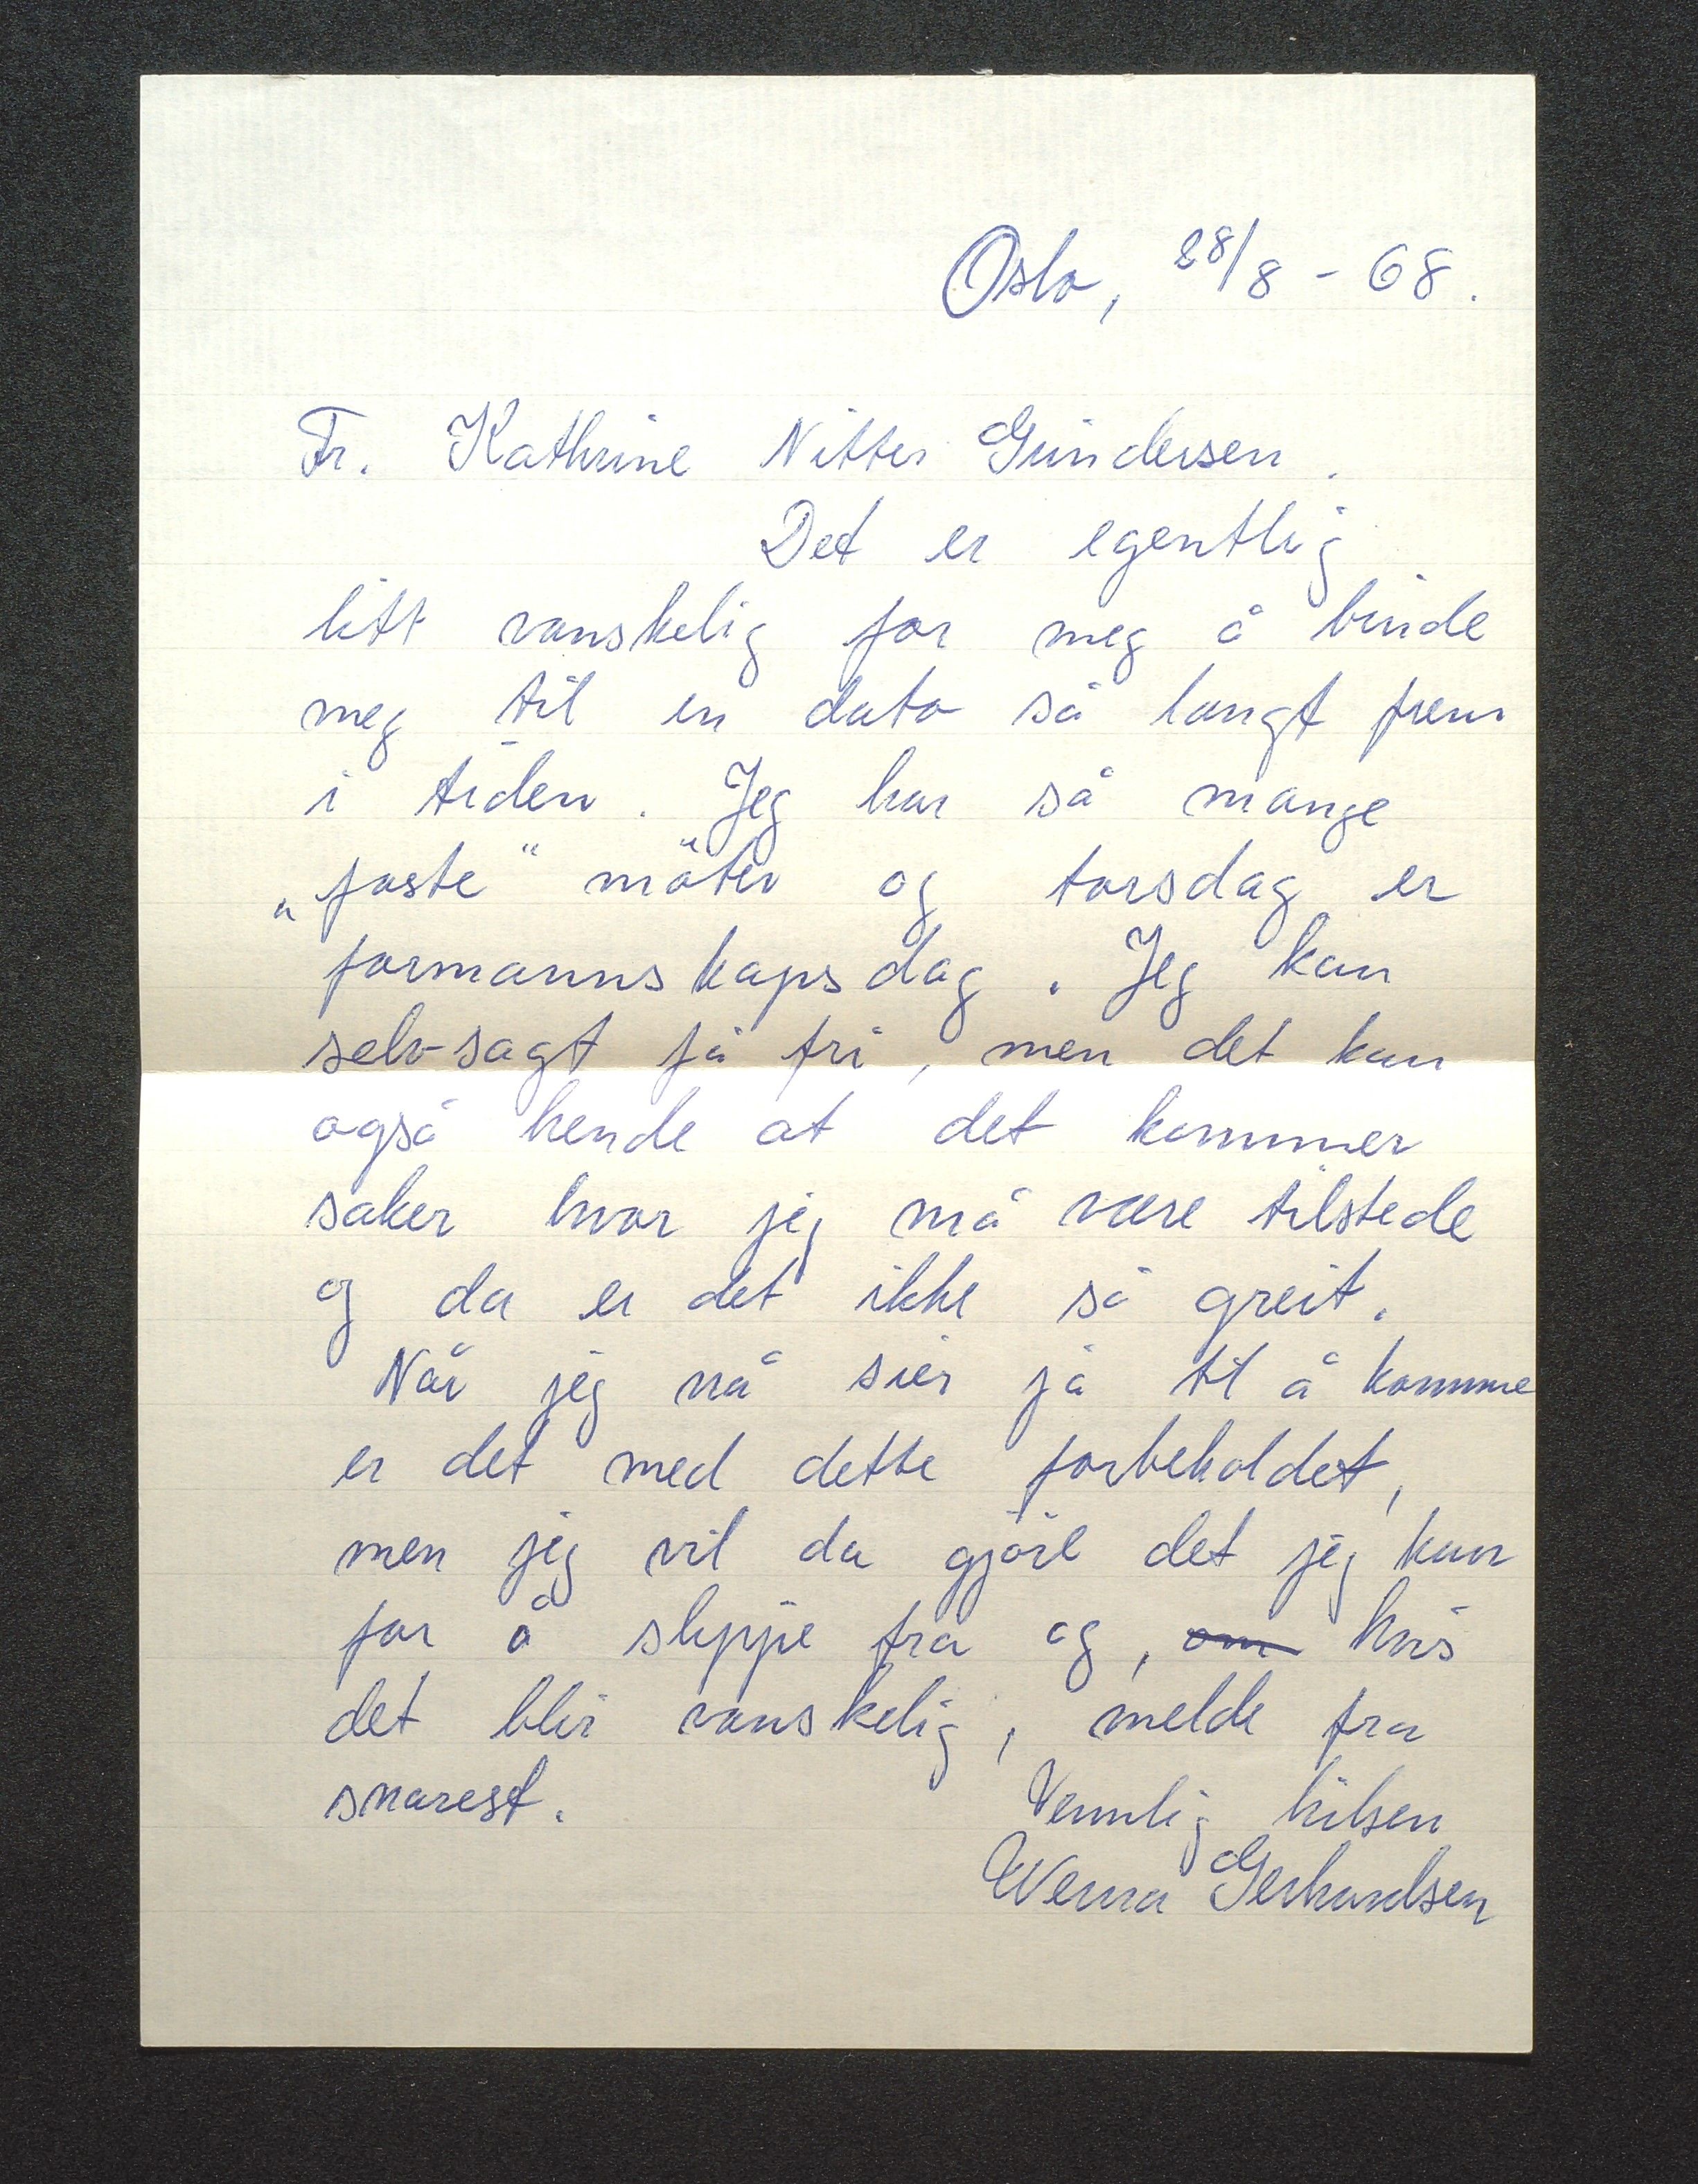 Oslo, 28/8 - 68.
Fr. Kathrine Nitter Gundersen.
Det er egentlig
litt vanskelig for meg å binde
meg til en dato så langt frem
i tiden. Jeg har så mange
„faste“ möter og torsdag er
formannskapsdag. Jeg kan
selvsagt få fri, men det kan
også hende at det kommer
saker hvor jeg må være tilstede
og da er det ikke så greit.
Når jeg nå sier ja til å komme
er det med dette forbeholdet,
men jeg vil da gjöre det jeg kan
for å slippe fra og, om hvis
det blir vanskelig, melde fra
snarest.
Vennlig hilsen
Werna Gerhardsen